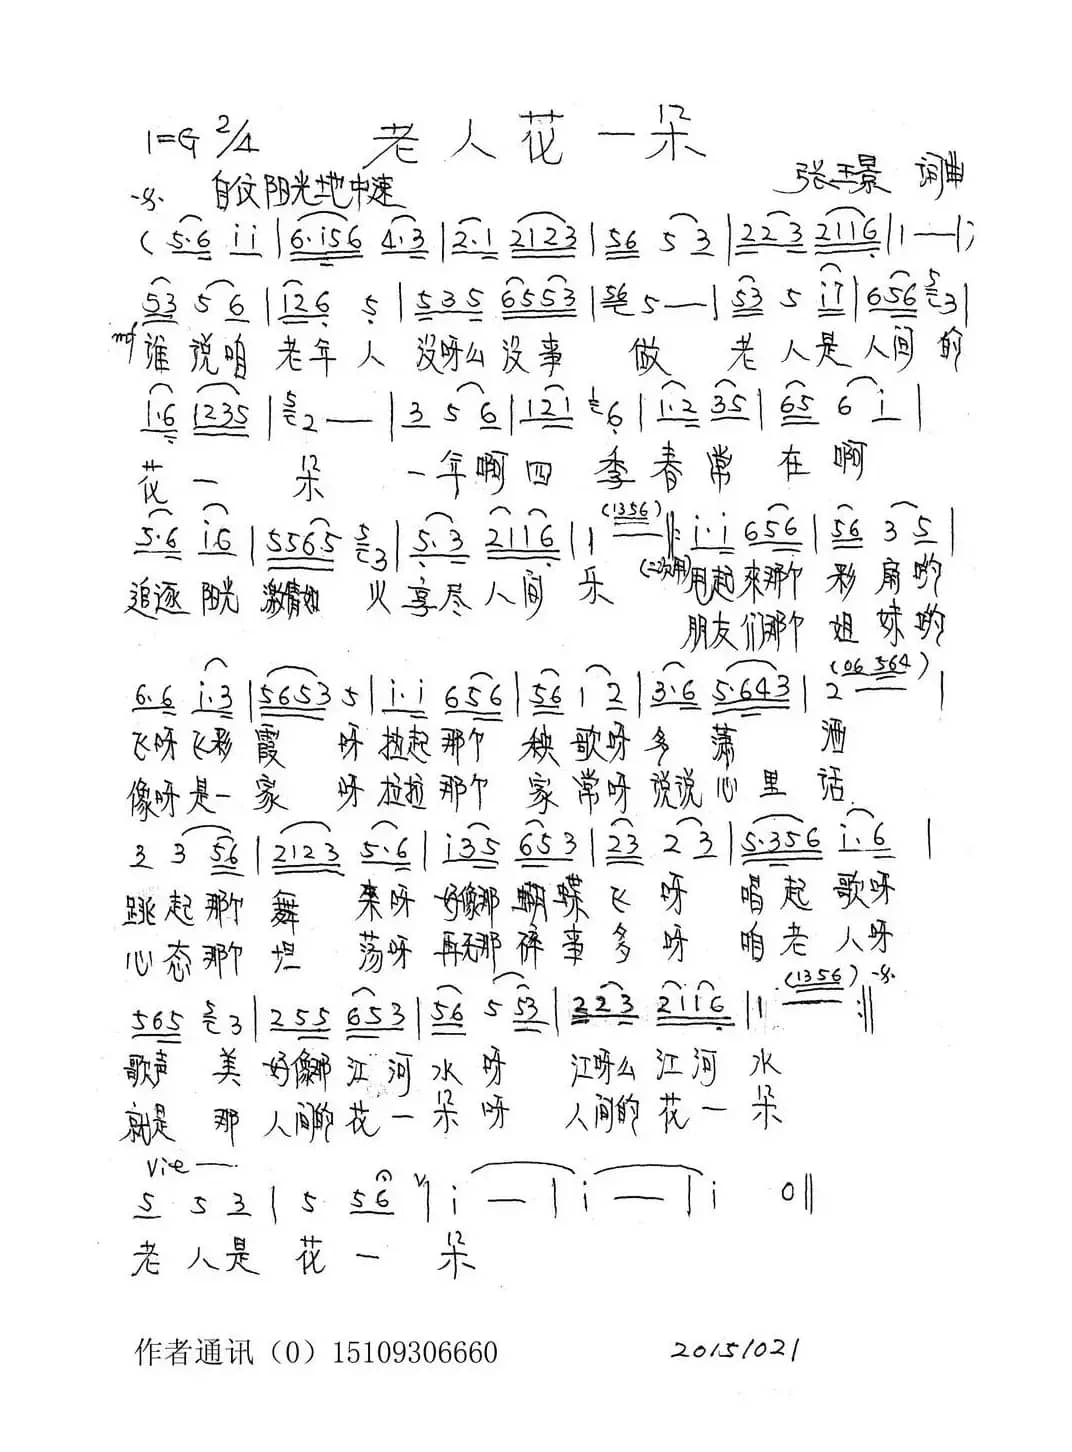 1=G 2/4 老人花一朵
自仪阳光地中速 张玉景 词曲
( 5·6 i i | 6·i56 4·3 | 2·1 2123 | 56 5 3 | 223 2116 | 1 — | ;
53 5 6 | 126 5 | 535 6553 | 56 5 — | 53 5 i7 | 656 5 3 |
mf 谁说咱老年人没呀么没事做老人是人间的
1·6 1235 | 5 2 — | 3 5 6 | 121 6 | 1·2 35 | 65 6 i |
花一朵一年啊四季春常在啊
5·6 i6 | 5565 5 3 | 5·3 2116 | 1 (1356) ‖: i·i 656 | 56 3 5 |
追逐阳光激情如火享尽人间乐 (二次用) 甩起来那个彩扇哟
朋友们那个姐妹哟
6·6 i·3 | 5653 5 | i·i 656 | 56 1 2 | 3·6 5·643 | 2 — (06 564) |
飞呀飞彩霞呀扭起那个秧歌呀多潇洒
像呀是一家呀拉拉那个家常呀说说心里话
3 3 56 | 2123 5·6 | i35 653 | 23 2 3 | 5·356 i·6 |
跳起那个舞来呀好像那蝴蝶飞呀唱起歌呀
心态那个坦荡呀再无那碎事多呀咱老人呀
565 5 3 | 255 653 | 56 5 53 | 223 2ii6 | 1 (1356) :‖
歌声美好像那江河水呀江呀么江河水
就是那人间的花一朵呀人间的花一朵
5 5 3 | 5 56 | i — | i — | i 0 ‖
老人是花一朵
作者通讯（0）15109306660 20151021